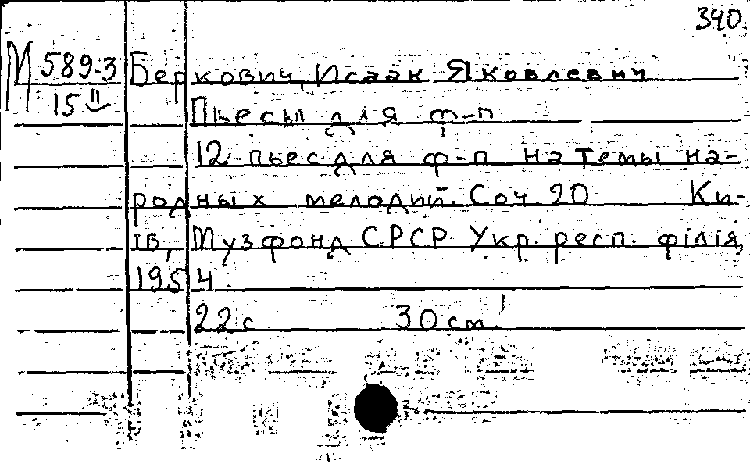 340
М 589-3 Беркович, Исаак Яковлевич
15 II Пьесы для ф-п
12 пьес для ф-п на темы на-
родных мелодий. Соч 20 Ки-
їв, Музфонд СРСР Укр. респ. філія,
1954.
22 с 30 cm.